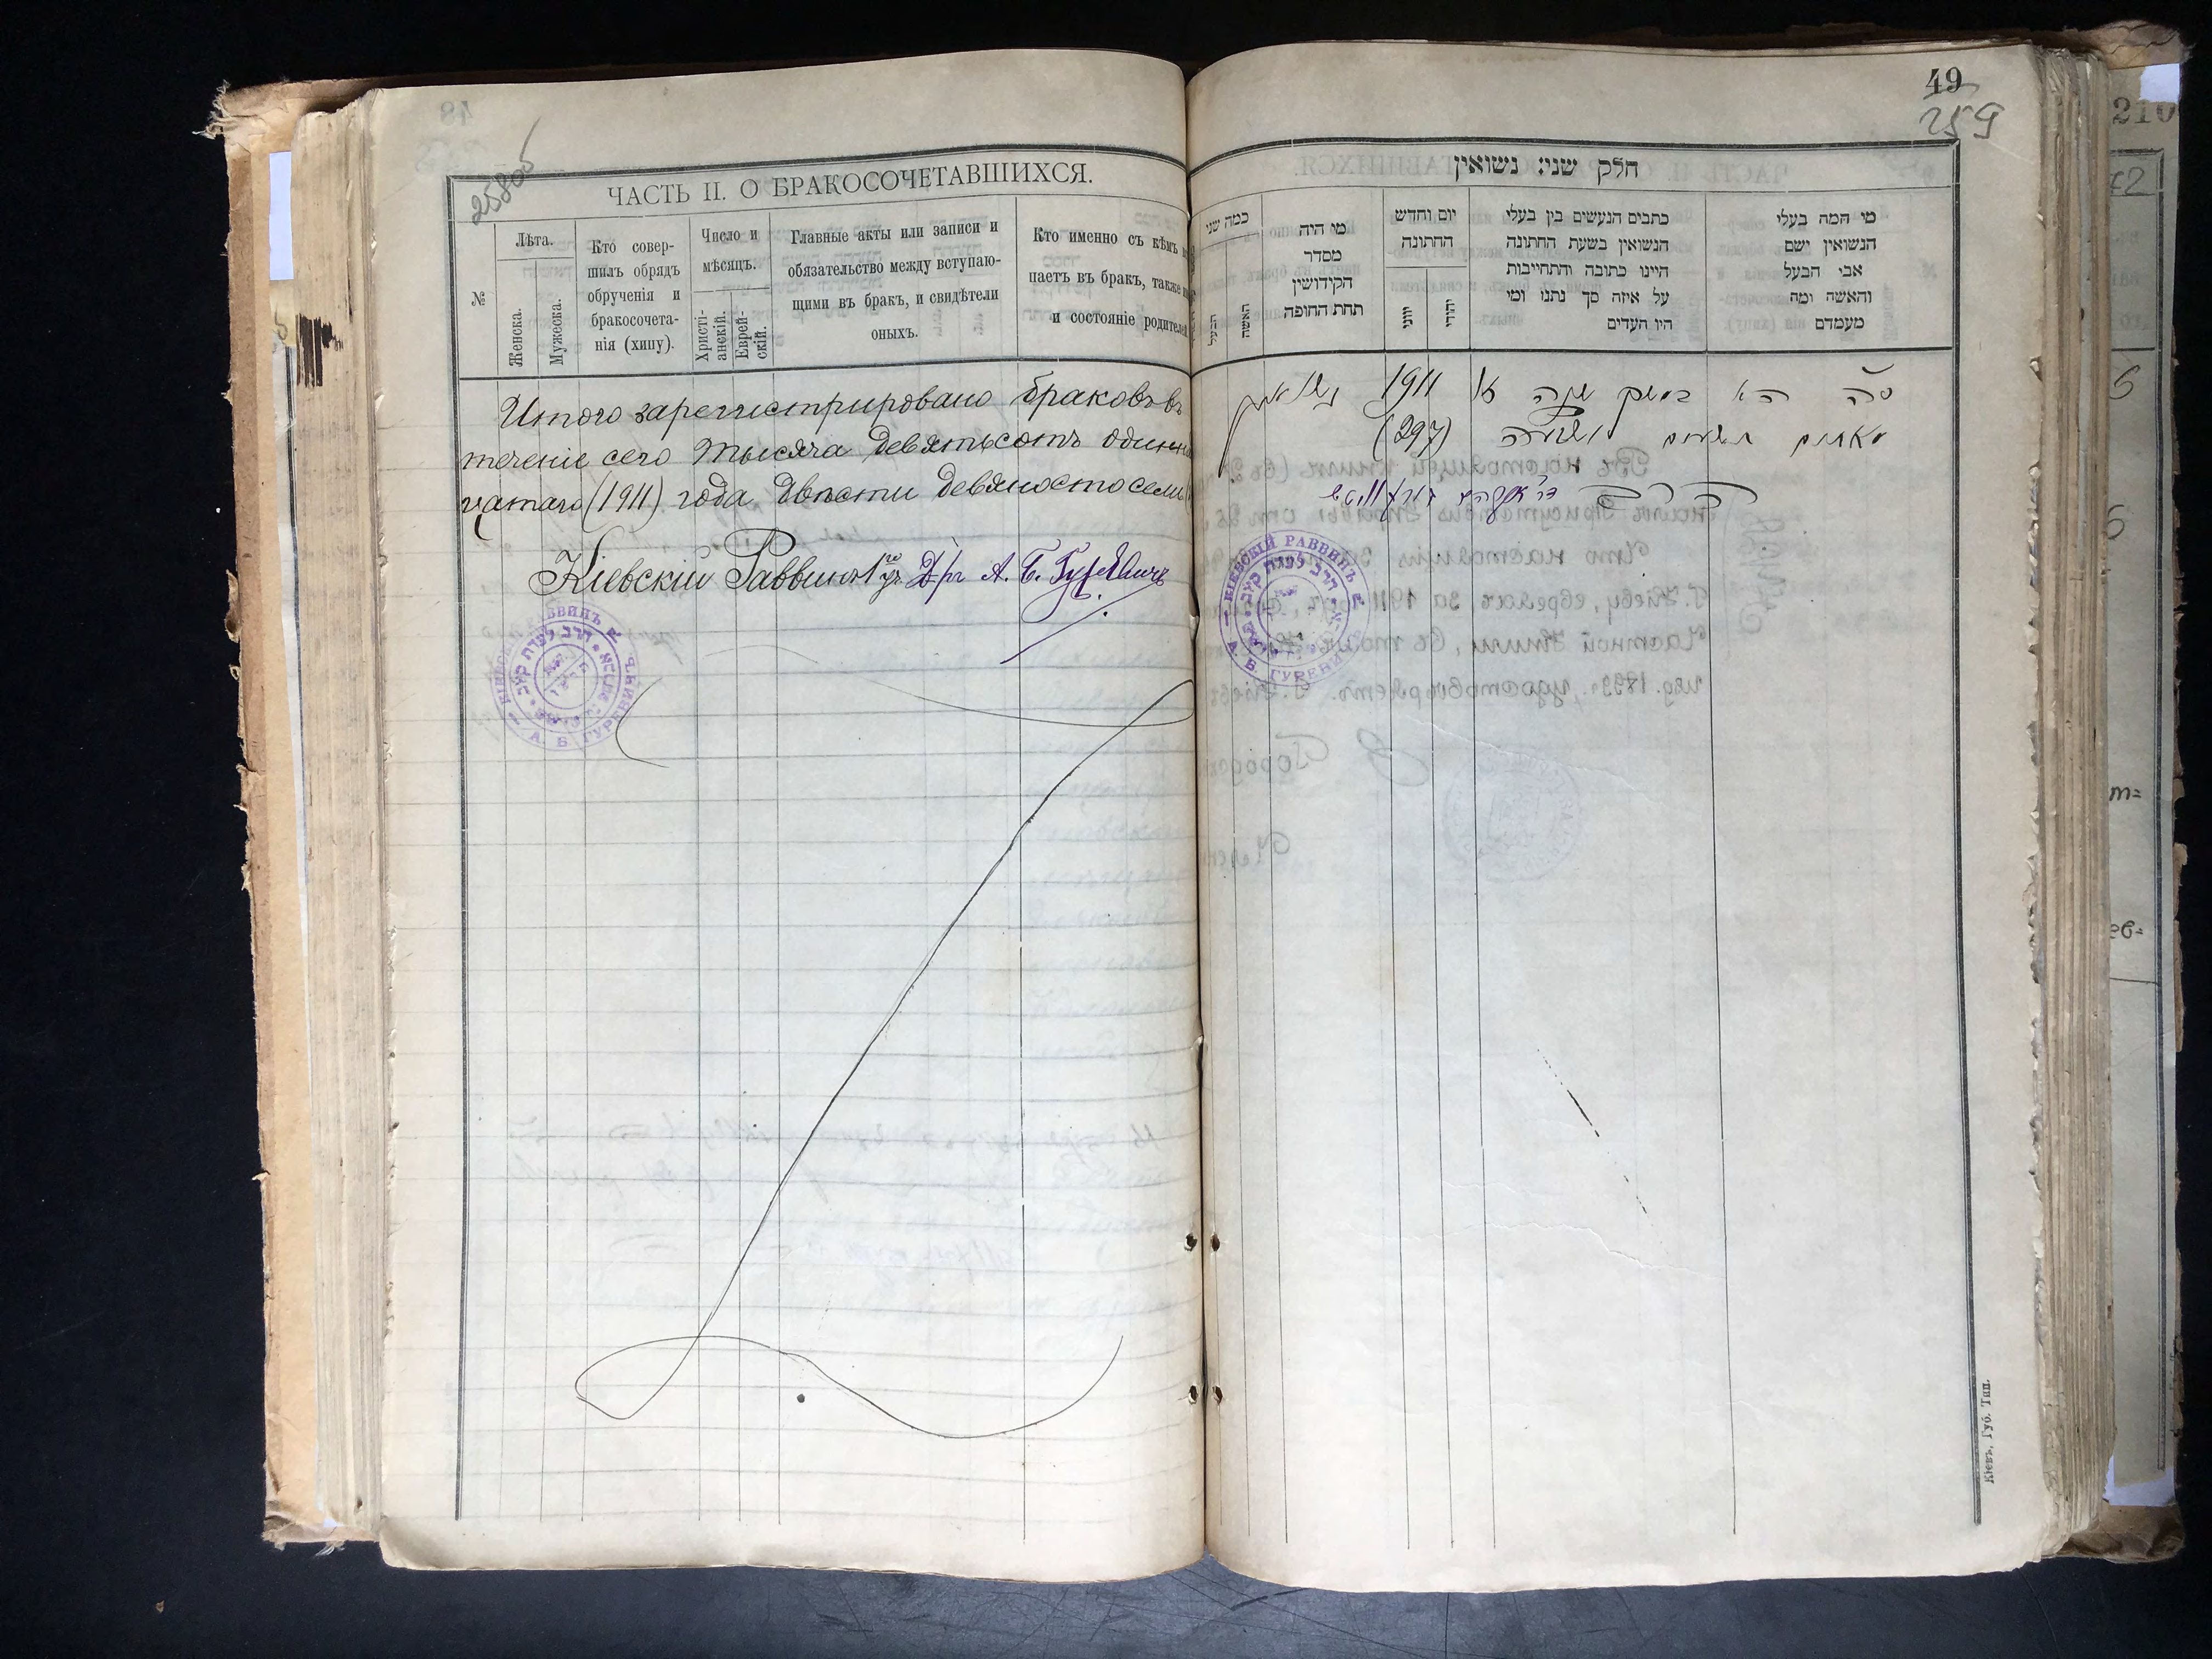 258об
ЧАСТЬ II. О БРАКОСОЧЕТАВШИХСЯ.
№
Лѣта.
Женска.
Мужеска.
Кто совер-
шилъ обрядъ
обрученія и
бракосочета-
нія (хипу).
Число и
мѣсяцъ.
Христі-
анскій.
Еврей-
скій.
Главные акты или записи и
обязательство между вступаю-
щими въ бракъ, и свидѣтели
оныхъ.
Кто именно съ кѣмъ
паетъ въ бракъ, также
и состояніе родителей
Итого зарегистрировано браковъ въ
теченіе сего тысяча девятьсотъ одинна
цатаго (1911) года двѣсти девяносто семь
Кіевскій Раввинъ 1го уч. Д/ръ А. Б. Гуревичъ
КІЕВСКІЙ РАВВИНЪ
А. Б. ГУРЕВИЧЪ
49
259
חלק שני: נשואין
כמה שני
הבעל
האשה
מי היה
מסדר
הקידושין
תחת החופה
יום וחדש
החתונה
יווני
יהודי
כתבים הנעשים בין בעלי
הנשואין בשעת החתונה
היינו כתובה והתחייבות
על איזה סך נתנו ומי
היו העדים
מי המה בעלי
הנשואין ושם
אבי הבעל
והאשה ומה
מעמדם
סה״כ בא במשך שנה זו 1911 נשואין
מאתים תשעים ושבעה (297)
КІЕВСКІЙ РАВВИНЪ
А. Б. ГУРЕВИЧЪ
Кіевъ, Губ. Тип.
210